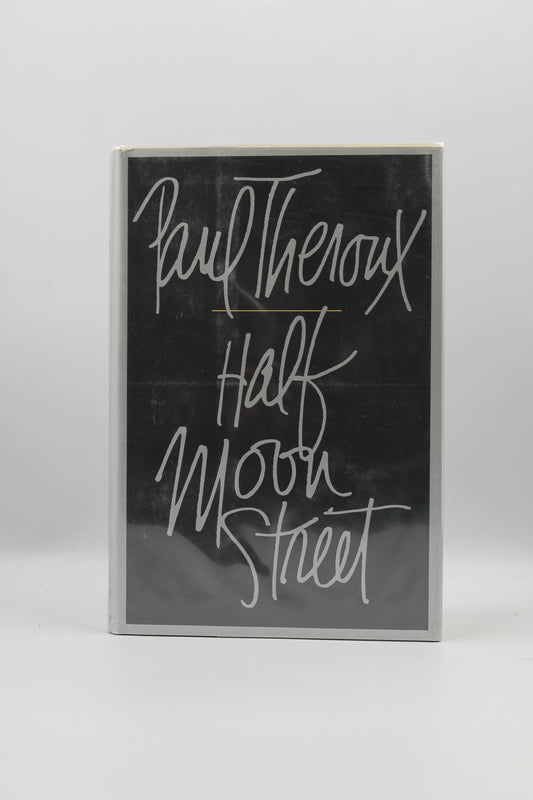 Paul Theroux
Half
Moon
Street